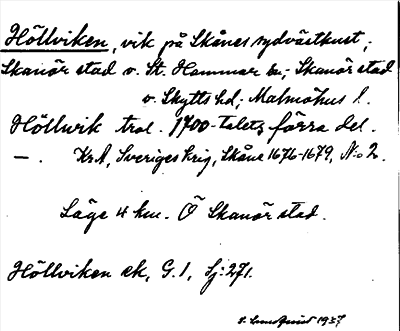 Höllviken, vik på Skånes sydvästkust,
Skanör stad o. St. Hammar by, Skanör stad
o. Skytts hd, Malmöhus l.
Höllwik trol. 1700-talets förra del.
—. KrA, Sveriges krig, Skåne 1676-1679, N:o 2.
Läge 4 km. Ö Skanör stad.
Höllviken ek, G. 1, Sj: 271.
Lundquist 1937